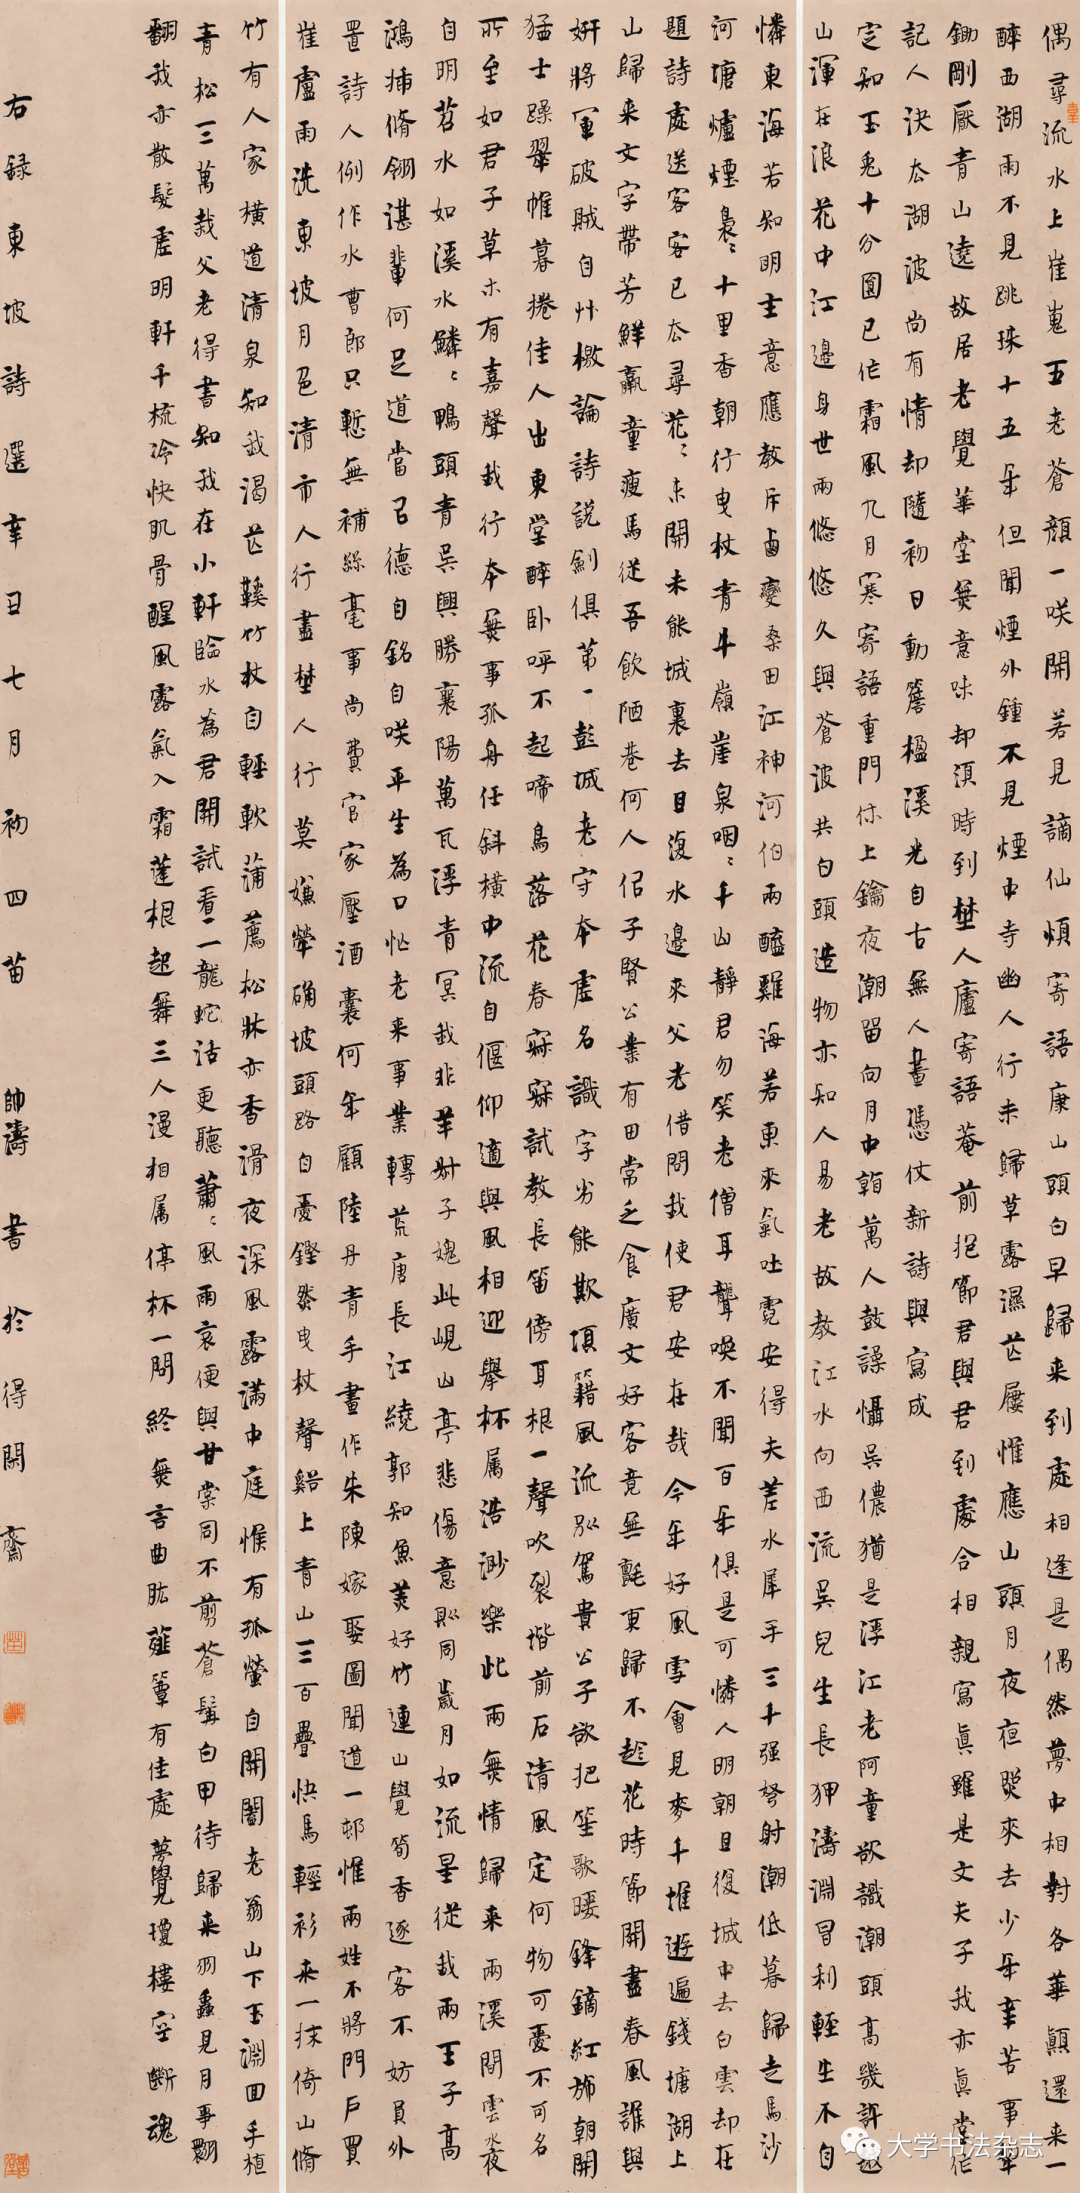 偶尋流水上崔嵬五老蒼顏一咲開若見謫仙煩寄語康山頭白早歸來到處相逢是偶然夢中相對各華顛還來一
醉西湖雨不見跳珠十五年但聞煙外鍾不見煙中寺幽人行未歸草露濕芒屨惟應山頭月夜夜照來去少年辛苦事犂
鋤剛厭青山遶故居老覺華堂無意味却須時到野人廬寄語菴前抱節君與君到處合相親寫真雖是文夫子我亦真堂作
記人決去湖波尚有情却隨初日動簷楹溪光自古無人畫憑仗新詩與寫成
定知玉兔十分圓已作霜風九月寒寄語重門休上鑰夜潮留向月中看萬人鼓譟懾吳儂猶是浮江老阿童欲識潮頭高幾許越
山渾在浪花中江邊身世兩悠悠久與蒼波共白頭造物亦知人易老故教江水向西流吳兒生長狎濤淵冒利輕生不自
憐東海若知明主意應教斥鹵變桑田江神河伯兩醯雞海若東來氣吐霓安得夫差水犀手三千强弩射潮低暮歸走馬沙
河塘爐煙裊裊十里香朝行曳杖青牛嶺崖泉咽咽千山靜君勿笑老僧耳聾喚不聞百年俱是可憐人明朝且復城中去白雲却在
題詩處送客客已去尋花花未開未能城裏去且復水邊來父老借問我使君安在哉今年好風雪會見麥千堆遊遍錢塘湖上
山歸来文字帶芳鮮羸童瘦馬從吾飲陋巷何人侶子賢公業有田常乏食廣文好客竟無氈東歸不趁花時節開盡春風誰與
妍將軍破賊自艸檄論詩說劍俱第一彭城老守本虛名識字劣能欺項籍風流別駕貴公子欲把笙歌暖鋒鏑紅旆朝開
猛士躁翠帷暮捲佳人出東堂醉卧呼不起啼鳥落花春寂寂試教長笛傍耳根一聲吹裂堦前石清風定何物可愛不可名
所至如君子草木有嘉聲我行本無事孤舟任斜橫中流自偃仰適與風相迎舉杯属浩渺樂此兩無情歸来兩溪間雲水夜
自明苕水如溪水鱗鱗鴨頭青吳興勝襄陽萬瓦浮青冥我非羊叔子媿此峴山亭悲傷意則同歲月如流星從我兩王子高
鴻插脩翎湛輩何足道當以德自銘自咲平生為口忙老来事業轉荒唐長江繞郭知魚美好竹連山覺筍香逐客不妨員外
置詩人例作水曹郎只慙無補絲毫事尚費官家壓酒囊何年顧陸丹青手畫作朱陳嫁娶圖聞道一邨惟兩姓不將門戶買
崔盧雨洗東坡月色清市人行盡野人行莫嫌犖确坡頭路自愛鏗然曳杖聲谿上青山三百疊快馬輕衫来一抹倚山脩
竹有人家橫道清泉知我渴芒鞵竹杖自輕軟蒲薦松牀亦香滑夜深風露滿中庭惟有孤螢自開闔老翁山下玉淵回手植
青松三萬栽父老得書知我在小軒臨水為君開試看一一龍蛇活更聽蕭蕭風雨哀便與甘棠同不剪蒼髯白甲待歸来羽蟲見月爭翾
翻我亦散髮虛明軒千梳冷快肌骨醒風露氣入霜蓬根起舞三人漫相属停杯一問終無言曲肱薤簟有佳處夢覺瓊樓空斷魂
右録東坡詩選辛丑七月初四
書於得閑齋
大学书法杂志